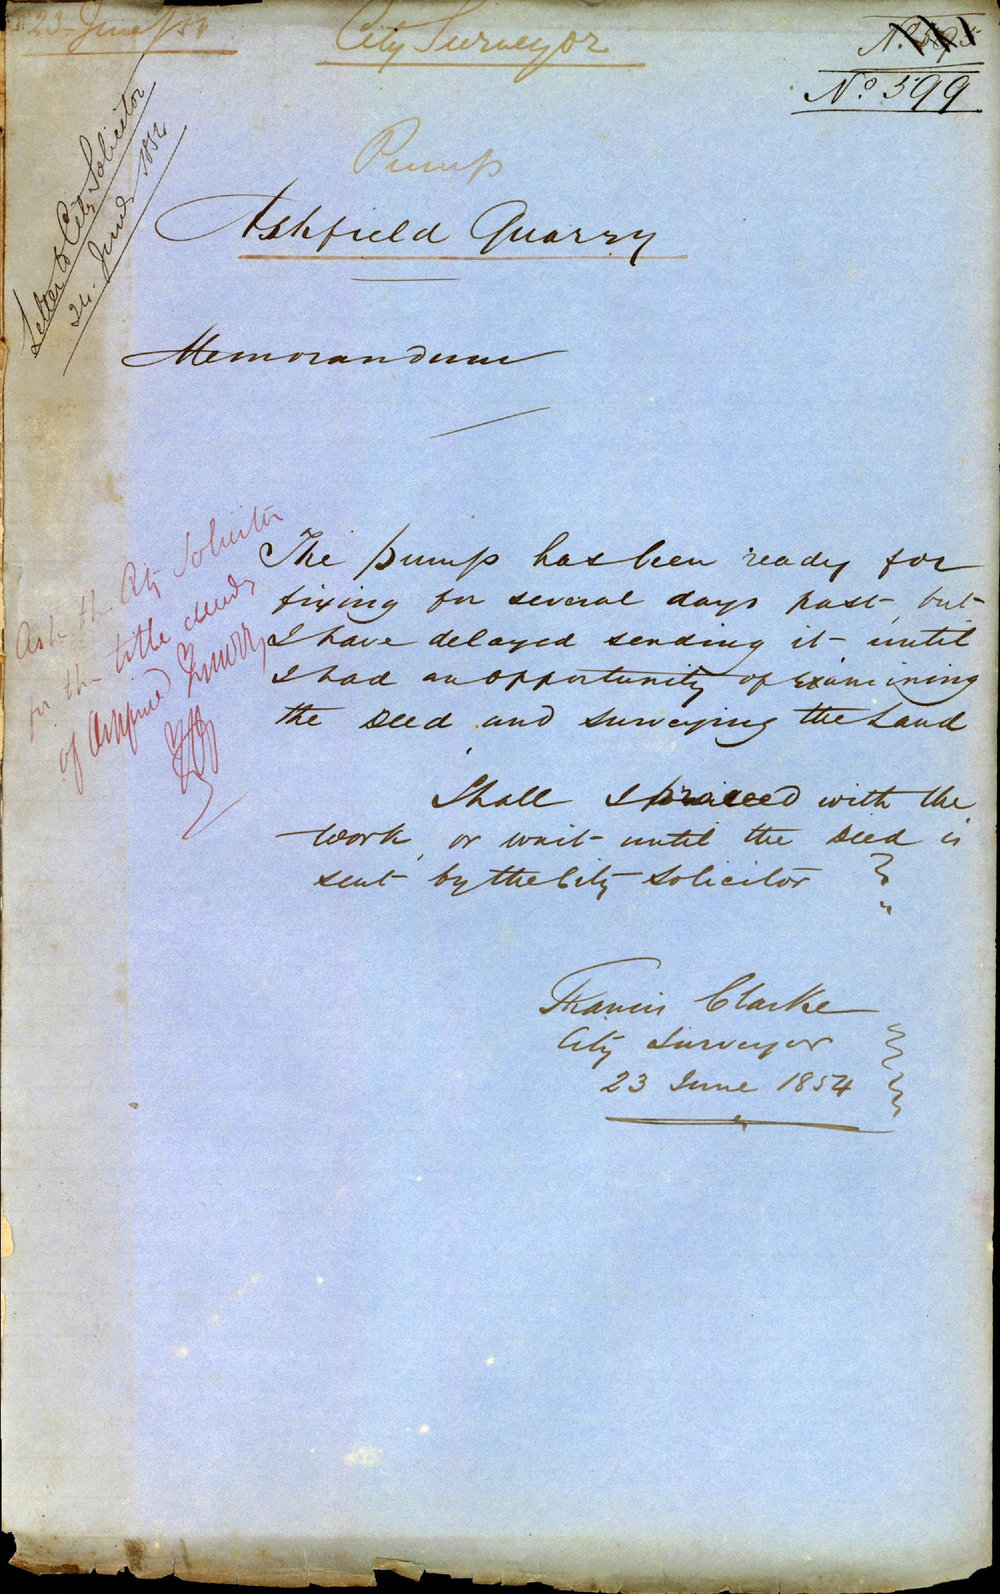 23 June / 53
City Surveyor
No. 595
No. 599
Letter to City Solicitor
24. June 1854
Pump
Ashfield Quarry
Memorandum
Ask the City Solicitor
for the title deeds
of Ashfield Quarry
The pump has been ready for
fixing for several days past, but
I have delayed sending it until
I had an opportunity of examining
the Deed and surveying the Land
Shall I proceed with the
work, or wait until the Deed is
sent by the City Solicitor
Francis Clarke
City Surveyor
23 June 1854